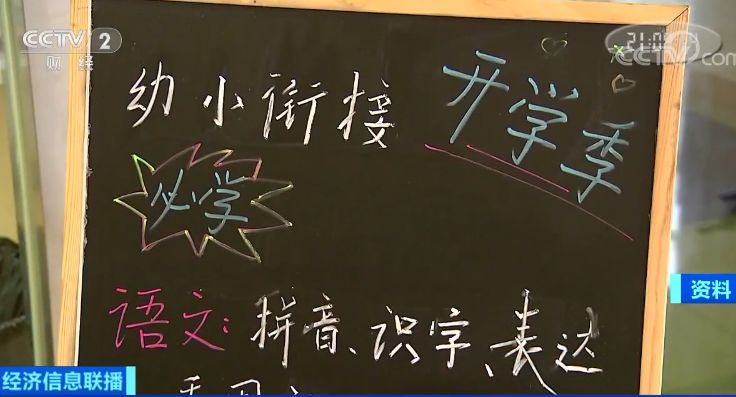 CCTV 2
财经
21:0
CCTV.com
幼小衔接 开学季
必学
资料
语文:拼音、识字、表达
经济信息联播